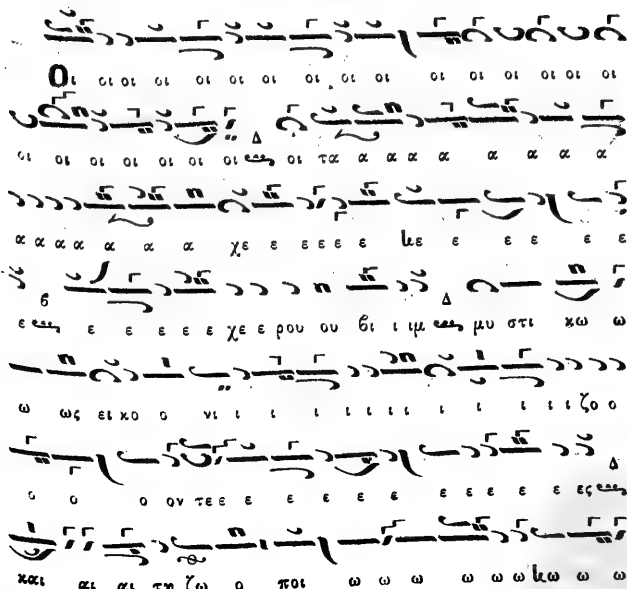 Οι οι οι οι οι οι οι οι οι οι οι οι οι οι οι οι
οι οι οι οι οι οι οι οι τα α α α α α α α α
α α α α α α α χε ε ε ε ε ε κε ε ε ε ε ε
ε ε ε ε ε ε χε ε ρου ου βι ι ιμ μυ στι κω ω
ω ως ει κο ο νι ι ι ι ι ι ι ι ι ι ι ι ι ζο ο
ο ο ο ον τε ε ε ε ε ε ε ε ε ε ε ε ε ες
και αι αι τη ζω ο ποι ω ω ω ω ω ω κω ω ω